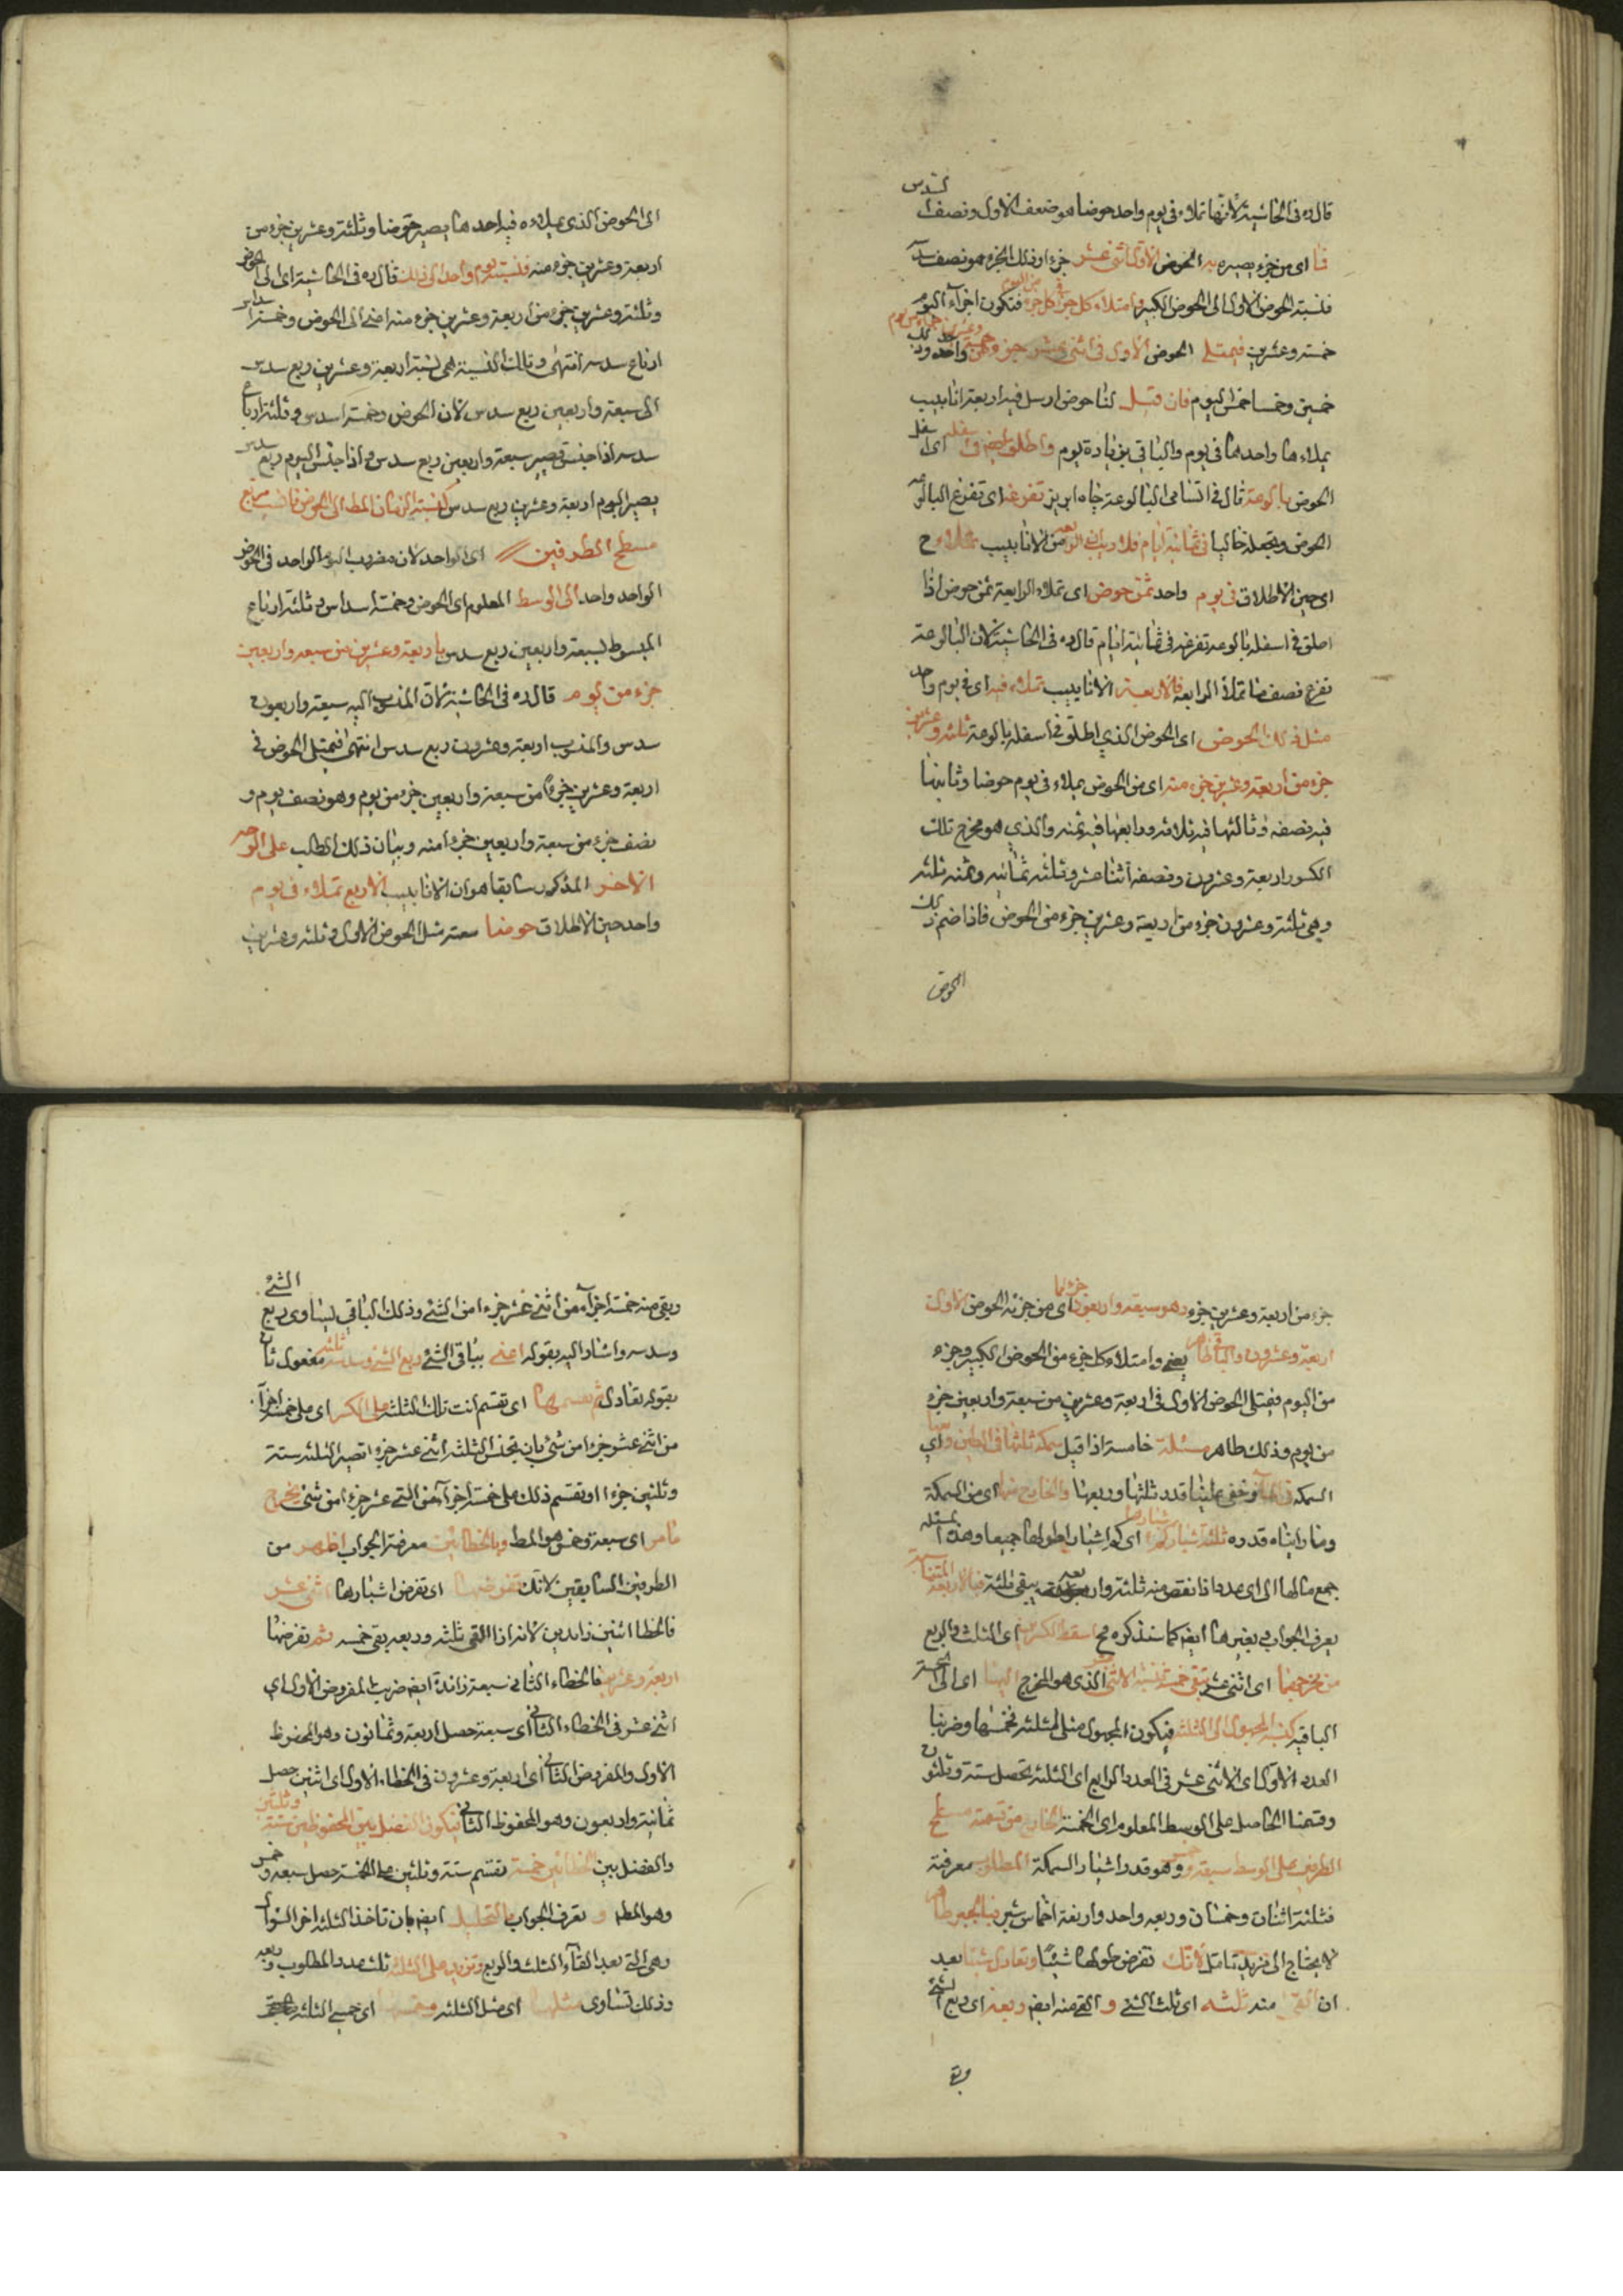 السدس
قال ره في الحاشية لانها تملاء في يوم واحد حوضا هو ضعف الاول ونصف
فاى من جزء يصير به الحوض الاول اثنى عشر جزء اذ ذلك الجزء هو نصف
فنسبة الحوض الاول الى الحوض الكبير وامتلاء كل جزء فتكون اجزآء اليوم
خمسة وعشرين فيمتلى الحوض الاول في اثنى عشر
خمسين وخمسا خمس اليوم فان قيل لنا حوض ارسل فيه اربعة انابيب
يملاءها واحدها في يوم والبا في بزيادة يوم واطلق ايض في اسفله اى
الحوض بالوعة قال في البالوعة چاه ابريز تفرغه اى تفرغ البالوعه
الحوض وتجعله خاليا في ثمانية ايام فلا ريب ان الرابعه من الانابيب تملاء ح
اى حين الاطلاق في يوم واحد ثمن حوض اى تملاء الرابعة ثمن حوض اذا
اطلق في اسفله بالوعه تفرغه في ثمانية ايام قال ره في الحاشية لان البالوعة
تفرغ نصف ما تملأ الرابعه فالاربعة الانابيب تملاء فيه اى في يوم واحد
مثل ذلك الحوض اى الحوض الذي اطلق في اسفله بالوعة ثلثة وعشرين
جزء من اربعة وعشرين جزء منه اى من الحوض يملاء في يوم حوضا وثانيها
فيه نصفه وثالثها فيه ثلاثه ورابعها فيه ثمنه والذي هو مخرج تلك
الكسور اربعة وعشرون ونصفه اثنا عشر وثلثه ثمانيه وثمنه ثلثه
وهي ثلثة وعشرون جزء من اربعة وعشرين جزء من الحوض فاذا ضم ذلك
الحوض
الى الحوض الذي يملاءه فيه احدها يصير حوضا وثلثة وعشرين جزء من
اربعة وعشرين جزء منه فنسبة يوم واحد الى ذلك قال ره في الحاشية اى الى الحوض
وثلثة وعشرين جزء من اربعة وعشرين جزء منه اضے الى الحوض وخمسة اسداس
ارباع سدسه انتهى وتلك النسبة هى نسبة اربعة وعشرين ربع سدس
الى سبعة واربعين ربع سدس لان الحوض وخمسة اسدس وثلثة ارباع
سدسه اذا جنس تصير سبعة واربعين ربع سدس واذا جنس اليوم ربع سدس
يصير اليوم اربعة وعشرين ربع سدس كنسبة الزمان المط الى الحوض فانسب
مسطح الطرفين اى الواحد لان مضروب اليوم الواحد في الحوض
الواحد واحد الى الوسط المعلوم اى الحوض وخمسة اسداس وثلثة ارباع
المبسوط لسبعة واربعين ربع سدس باربعة وعشرين من سبعه واربعين
جزء من يوم قال ره في الحاشية لان المنسوب اليه سبعة واربعون
سدس والمنسوب اربعة وعشرون ربع سدس انتهى فيمتلى الحوض في
اربعة وعشرين جزء من سبعة واربعين جزء من يوم وهو نصف يوم و
نصف جزء من سبعة واربعين جزء منه وبيان ذلك المطلب على الوجه
الاخر المذكور سابقا هو ان الانابيب الاربع تملاء في يوم
واحد حين الاطلاق حوضا سعته مثل الحوض الاول وثلثه وعشرين
جزء من اربعة وعشرين جزء وهو سبعة واربعون جزءا مما اى من جزئه الحوض الاول
اربعة وعشرون والباقي ظاهر يعنے وامتلاء كل جزء من الحوض الكبير وجزء
من اليوم فيمتلى الحوض الاول في اربعة وعشرين من سبعة واربعين جزء
من يوم وذلك ظاهر مسئلة خامسة اذا قيل سمكة ثلثها في الطين و
السمكة في الماء وخفي علينا قدر ثلثها وربعها والخارج منها اى من السمكة
وما رايناه قدره ثلثة اشبار كم اشبارها اى كم اشبار طولها جميعا وهذه المسئله
جمع مالها الى اى عدد اذا نقص منه ثلثه وربعه يبقى ثلثة فبالاربعة المتناسبة
يعرف الجواب وبغيرها ايض كما سنذكره مح اسقط الكسرين اى الثلث والربع
من مخرجهما اى اثنى عشر تبقى خمسة فنسبة الاثنى الذي هو المخرج اليها اى الى الخمسة
الباقيه كنسبة المجهول الى الثلثة فيكون المجهول مثل الثلثه نخمسها وضربنا
العدد الاول اى الاثنى عشر في العدد الرابع اى الثلثة تحصل ستة وثلثون
وقسمنا الحاصل على الوسط المعلوم اى الخمسة الخارج من قسمة مسطح
الطرفين على الوسط سبعة وخمس وهو قدر اشبار السمكة المطلوب معرفة
فثلثة اثنان وخمسان وربعه واحد واربعة اخماس شبر وبالجبر ظاهر
لا يحتاج الى مزيد تامل لانك تفرض طولها شيئا وتعادل شيئا بعد
ان القى منه ثلثه اى ثلث الشئ و القے منه ايض ربعه اى ربع الشئ
وبقى
وبقى منه خمسة اجزآء من اثنے عشر جزءا من الشئ وذلك الباقى ليساوى ربع الشئ
وسدسه واشار اليه بقوله اعنے بباقى الشئ ربع الشئ وسدسه ثلثه مفعول ثان
بقوله تعادل ثم تقسمها اى تقسم انت تلك الثلثه على الكسر اى على خمسة اجزآء
من اثنے عشر جزءا من شئ بان تجنس الثلثه اثنے عشر جزءا تصير الثلثه ستة
وثلثين جزءا او تقسم ذلك على خمسة اجزآء من اثنے عشر جزءا من شئ يخرج
ما مر اى سبعة وخمس هو المط وبالخطائين معرفة الجواب اظهر من
الطرفين السابقين لانك تفرضها اى تفرض اشبارها اثنى عشر
فالخطا اثنين زايدين لانه اذا القى ثلثه وربعه بقى خمسه ثم تفرضها
اربعة وعشرين فالخطاء الثانى سبعة زائدة ايض ضربت المفروض الاول اى
اثنے عشر في الخطاء الثانى اى سبعة حصل اربعة وثمانون وهو المحفوظ
الاول والمفروض الثانى اى اربعة وعشرون في الخطاء الاول اى اثنين حصل
ثمانية واربعون وهو المحفوظ الثانى فيكون الفضل بين المحفوظين ستة وثلثين
والفضل بين الخطائين خمسة تقسم ستة وثلثين على الخمسة حصل سبعه و خمس
وهو المط و تعرف الجواب بالتحليل ايض بان تاخذ الثلثه اخر السؤال
وهى التى بعد القآء الثلث والربع وتزيد على الثلثه ثلث عدد المطلوب وربعه
وذلك تساوى مثلها اى مثل الثلثه وخمسها اى خمسے الثلثه